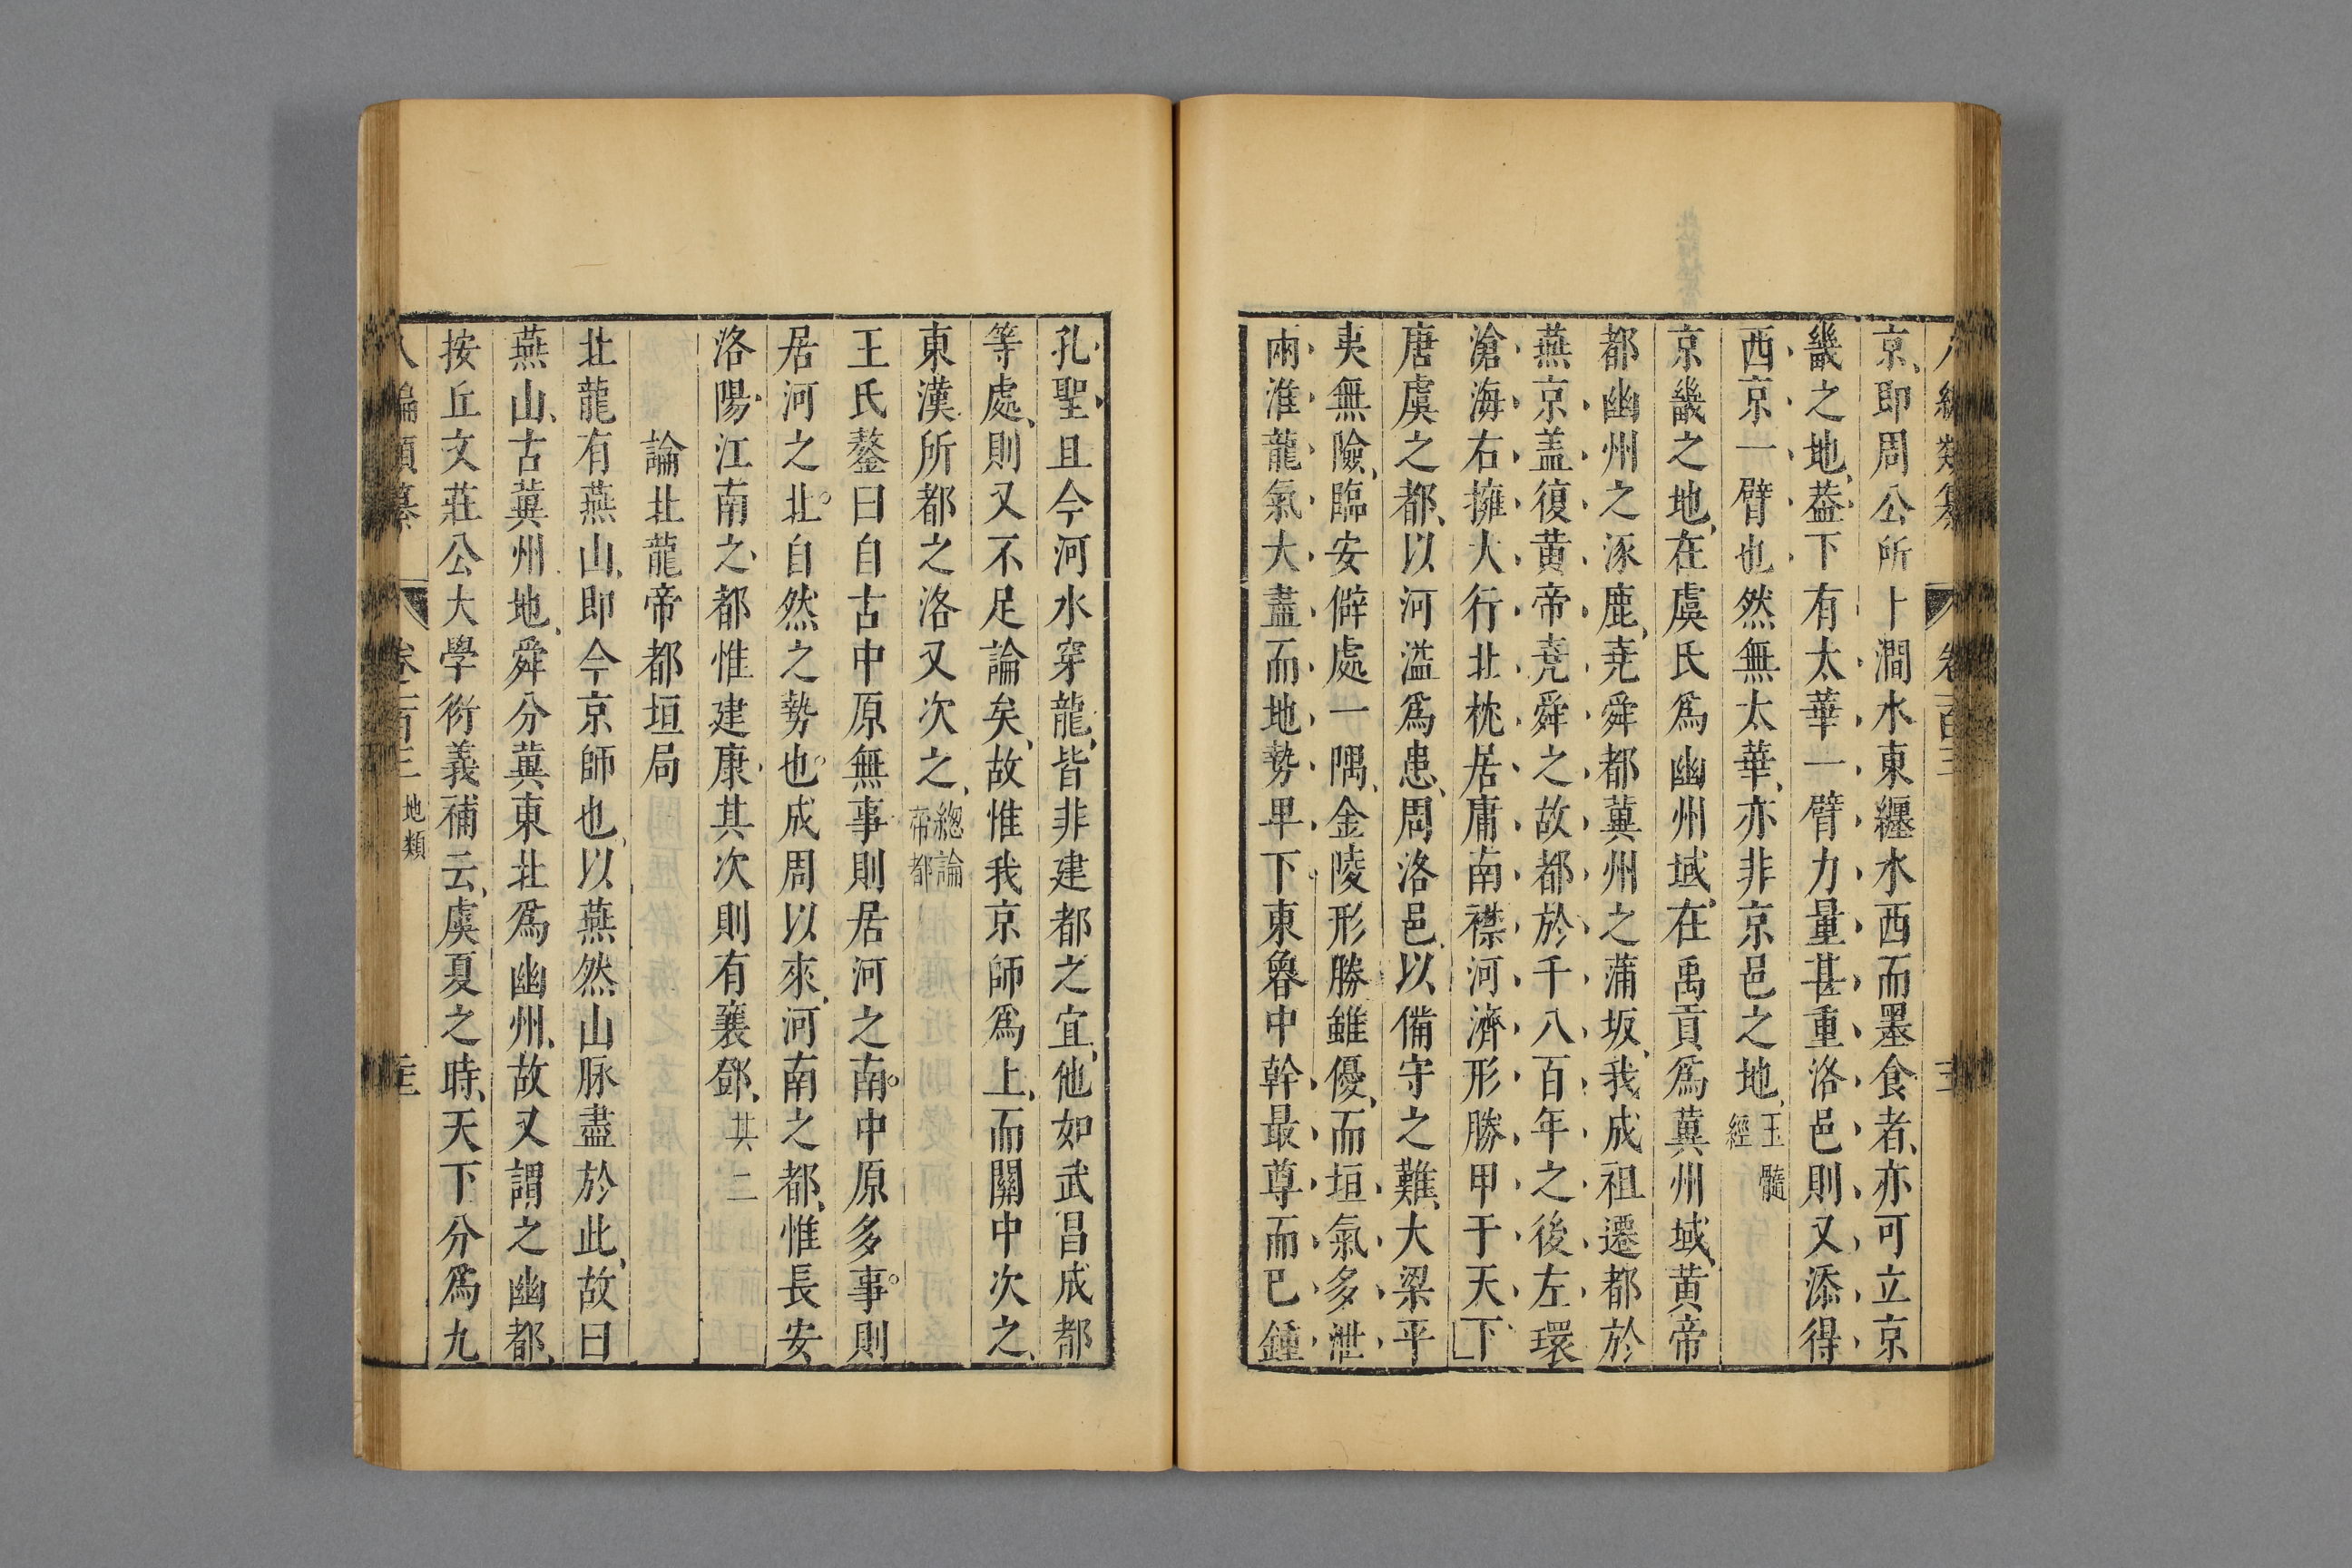 京、即周公所卜澗水東纏水西而墨食者、亦可立京
畿之地、葢下有太華一臂力量甚重洛邑則又添得
西京一臂也然無太華、亦非京邑之地、玉髓經
京畿之地、在虞氏爲幽州域、在禹貢爲冀州域、黄帝
都幽州之涿鹿、堯舜都冀州之蒲坂、我成祖遷都於
燕京盖復黄帝堯舜之故都於千八百年之後左環
滄海右擁大行北枕居庸南襟河濟形勝甲于天下
唐虞之都、以河溢爲患、周洛邑、以備守之難、大梁平
夷無險、臨安僻處一隅、金陵形勝雖優、而垣氣多泄
兩淮龍氣大盡而地勢卑下東魯中幹最尊而已鍾
孔聖且今河水穿龍、皆非建都之宜、他如武昌成都
等處、則又不足論矣、故惟我京師爲上、而關中次之、
東漢所都之洛又次之、總論帝都
王氏鏊曰自古中原無事則居河之南中原多事則
居河之北自然之勢也成周以來、河南之都、惟長安
洛陽江南之都惟建康其次則有襄鄧、其二
論北龍帝都垣局
北龍有燕山、即今京師也、以燕然山脉盡於此、故曰
燕山、古冀州地、舜分冀東北爲幽州、故又謂之幽都、
按丘文莊公大學衍義補云、虞夏之時、天下分爲九
編類纂 卷一百三 地類